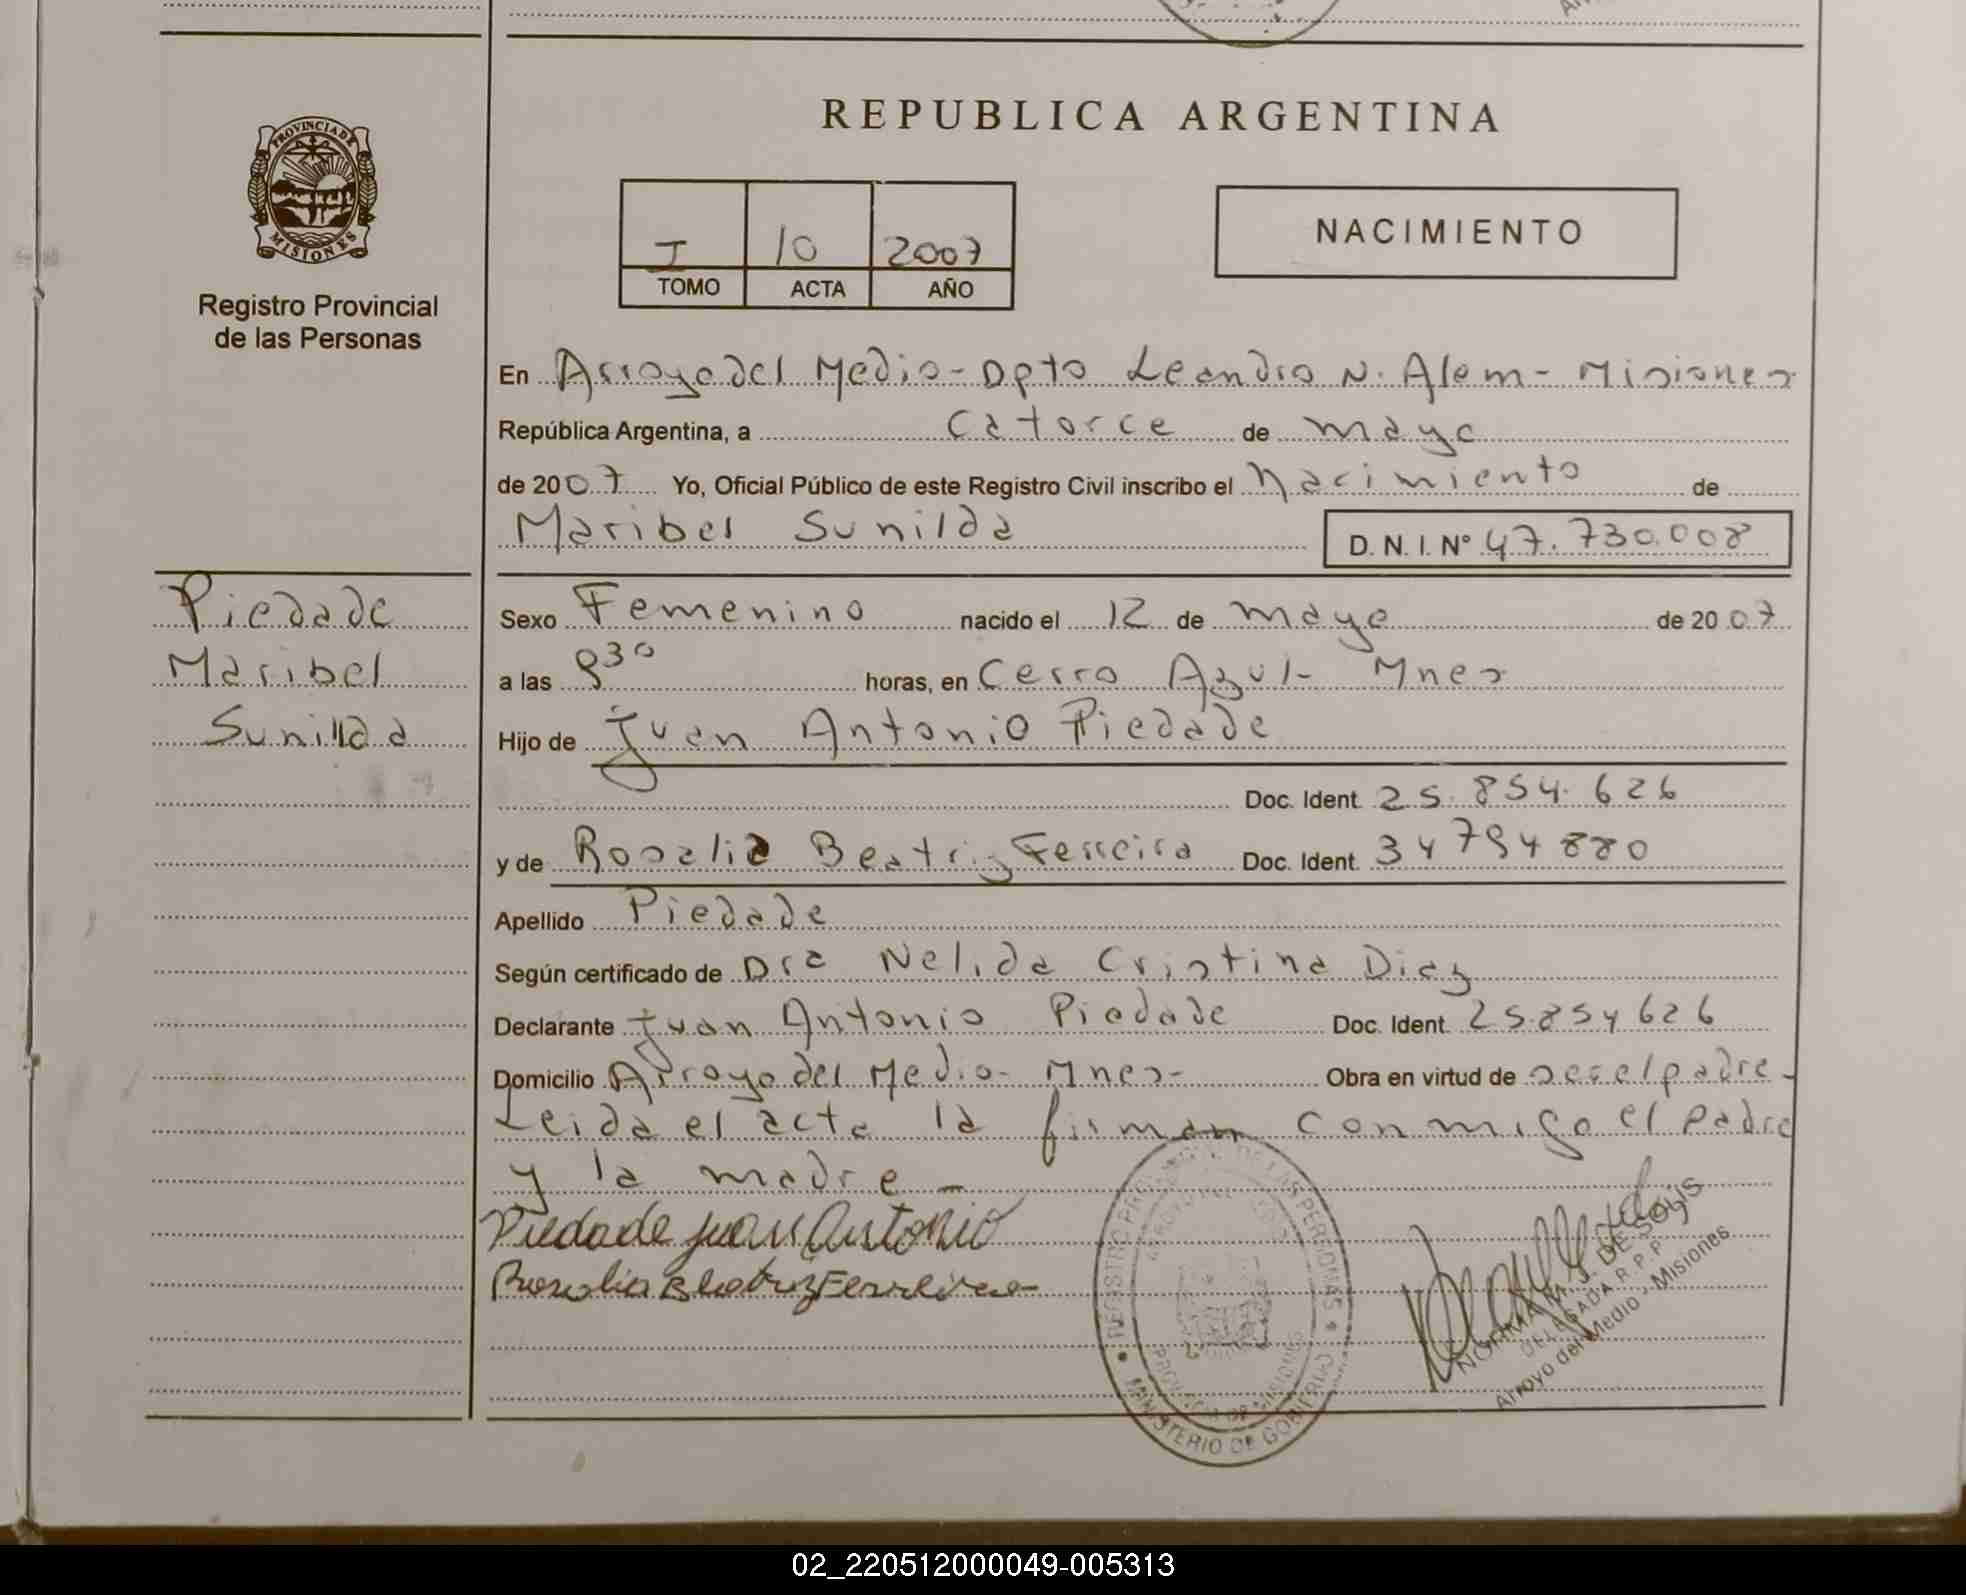 REPUBLICA ARGENTINA
PROVINCIA DE
MISIONES
Registro Provincial
de las Personas
I 10 2007
TOMO ACTA AÑO
NACIMIENTO
En Arroyo del Medio - Dpto Leandro N. Alem - Misiones
República Argentina, a Catorce de mayo
de 2007 Yo, Oficial Público de este Registro Civil inscribo el Nacimiento de
Maribel Sunilda D.N.I.Nº 47.730.008
Piedade
Maribel
Sunilda
Sexo Femenino nacido el 12 de mayo de 2007
a las horas, en Cerro Azul - Mnes
Hijo de Juan Antonio Piedade
Doc. Ident. 25.854.626
y de Rosalia Beatriz Ferreira Doc. Ident.
Apellido Piedade
Según certificado de Dra Nelida Cristina Diaz
Declarante Juan Antonio Piedade Doc. Ident. 25.854626
Domicilio Arroyo del Medio - Mnes - Obra en virtud de ser el padre -
Leida el acta la firman conmigo el padre
y la madre -
Piedade Juan Antonio
Rosalia Beatriz Ferreira
REGISTRO PROVINCIAL DE LAS PERSONAS
MINISTERIO DE GOBIERNO
PROVINCIA DE MISIONES
NORMA M. J. DE SOLIS
DELEGADA R.P.P.
Arroyo del Medio - Misiones
02_220512000049-005313